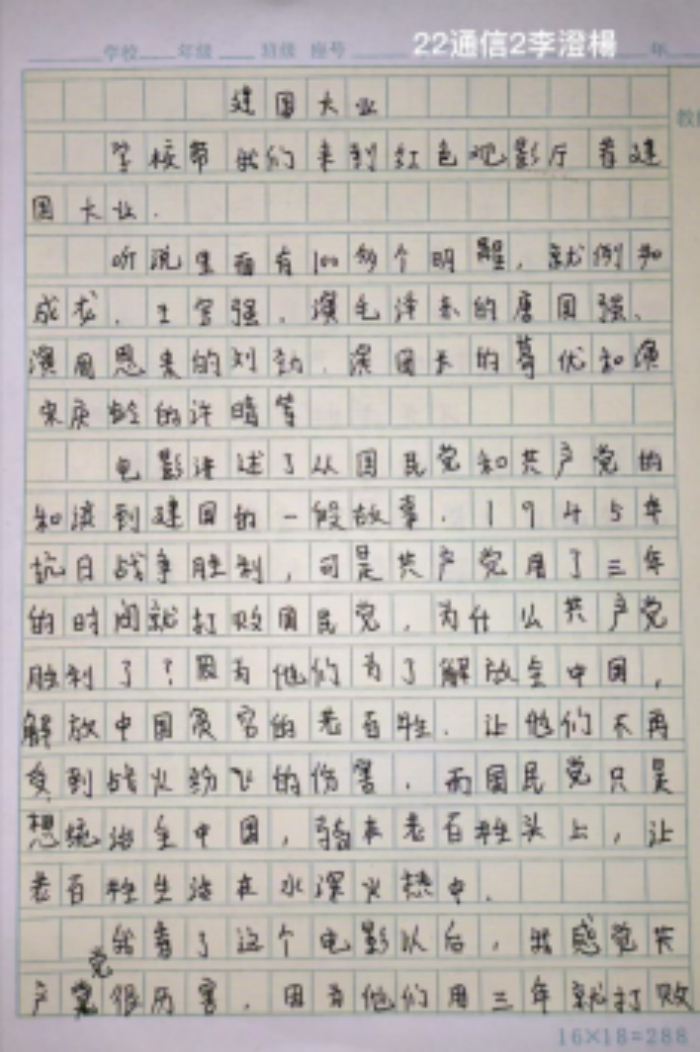 学校 年级 班级 座号 22通信2李澄楊 年
建国大业
学校带我们来到红色观影厅看建
国大业.
听说里面有100多个明星,就例如
成龙、王宝强、演毛泽东的唐国强、
演周恩来的刘劲、演团长的葛优和演
宋庆龄的许晴等
电影讲述了从国民党和共产党的
和谈到建国的一段故事.1945年
抗日战争胜利,可是共产党用了三年
的时间就打败国民党,为什么共产党
胜利了?因为他们为了解放全中国,
解放中国贫穷的老百姓.让他们不再
受到战火纷飞的伤害.而国民党只是
想统治全中国,骑在老百姓头上,让
老百姓生活在水深火热中.
我看了这个电影以后,我感觉共
产党很厉害.因为他们用三年就打败
16×18=288